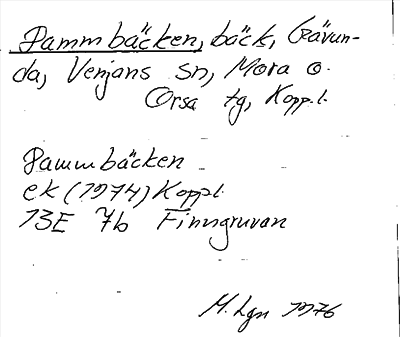 Dammbäcken, bäck, Gävun-
da, Venjans sn, Mora o.
Orsa tg, Kopp.l.
Dammbäcken
ek (1974) Koppl.
13E 7b Finngruvan
M. Lgn 1976